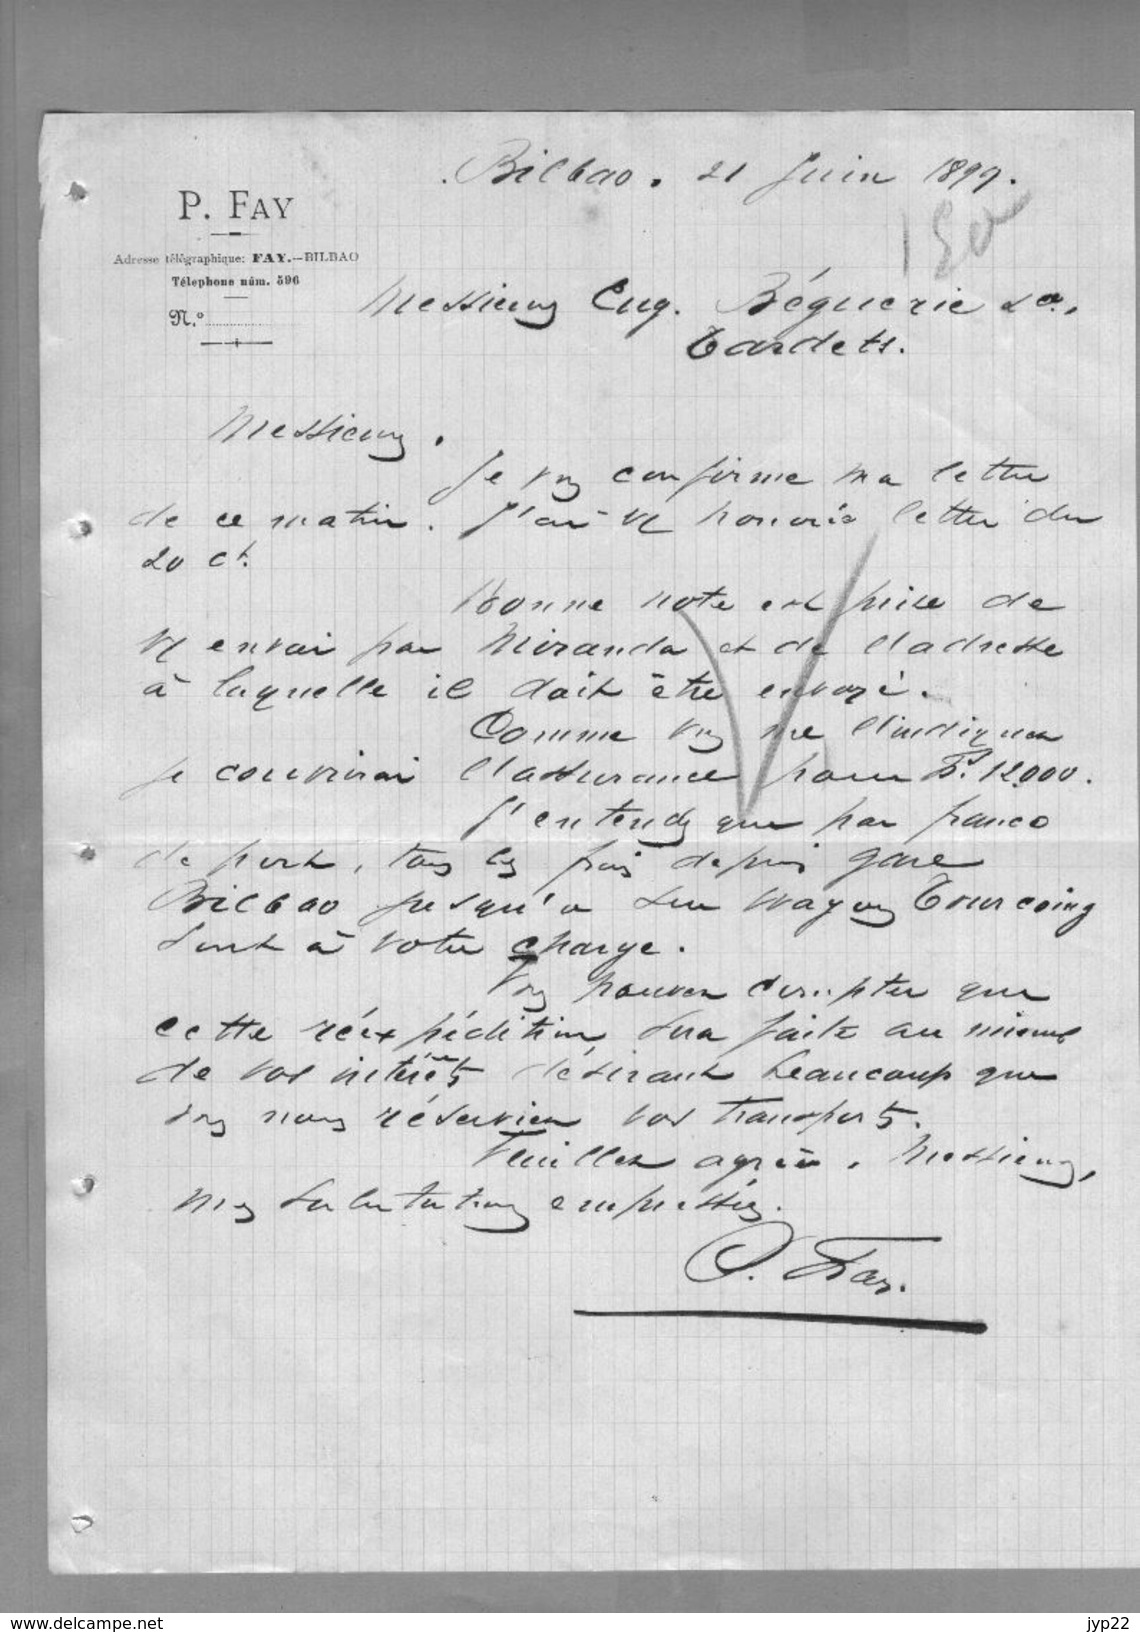 Bilbao, 21 Juin 1899.
P. FAY
Adresse télégraphique: FAY.—BILBAO
Télephone núm. 596
N.º
Messieurs Eug. Béguerie & Cª.
Tardets.
Messieurs,
Je vs confirme ma lettre
de ce matin. J'ai ve honorée lettre du
20 ct.
Bonne note est prise de
ve envoi par Miranda et de l'adresse
à laquelle il doit être envoyé.
Comme vs me l'indiquez
je couvrirai l'assurance pour Fs. 12.000.
J'entends que par franco
de port, tous les frais depuis gare
Bilbao jusqu'à sur wagon Tourcoing
sont à votre charge.
Vs pouvez compter que
cette réexpédition sera faite au mieux
de vos intérêts désirant beaucoup que
vs nous réserviez vos transports.
Veuillez agréer, Messieurs,
mes salutations empressées.
P. Fay.
www.delcampe.net
jyp22